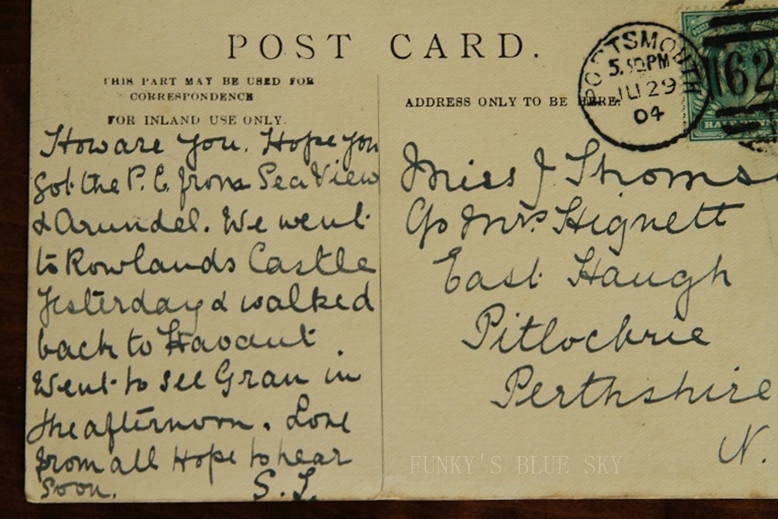 POST CARD.
THIS PART MAY BE USED FOR
CORRESPONDENCE
FOR INLAND USE ONLY.
ADDRESS ONLY TO BE HERE.
PORTSMOUTH
5.30PM
JU 29
04
62
HALF
How are you. Hope you
got the P.C. from Sea View
& Arundel. We went
to Rowlands Castle
yesterday & walked
back to Havant.
Went to see Gran in
the afternoon. Love
from all Hope to hear
soon. S.T.
Miss J Thoms
c/o Mrs Hignett
East Haugh
Pitlochrie
Perthshire
N.
FUNKY'S BLUE SKY